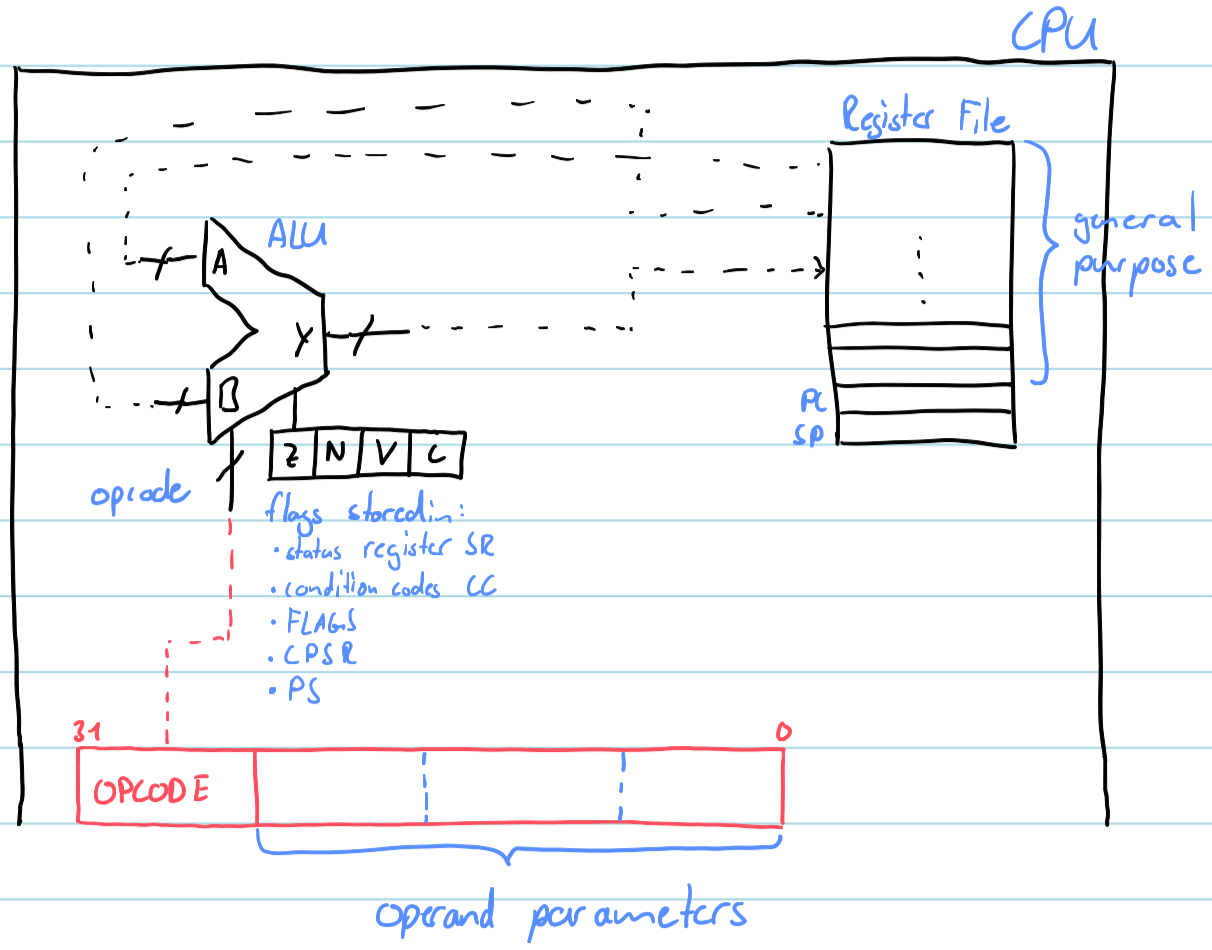 CPU
Register File
general
purpose
ALU
A
Y
B
PC
SP
Z N V C
opcode
flags stored in:
• status register SR
• condition codes CC
• FLAGS
• CPSR
• PS
31
0
OPCODE
operand parameters